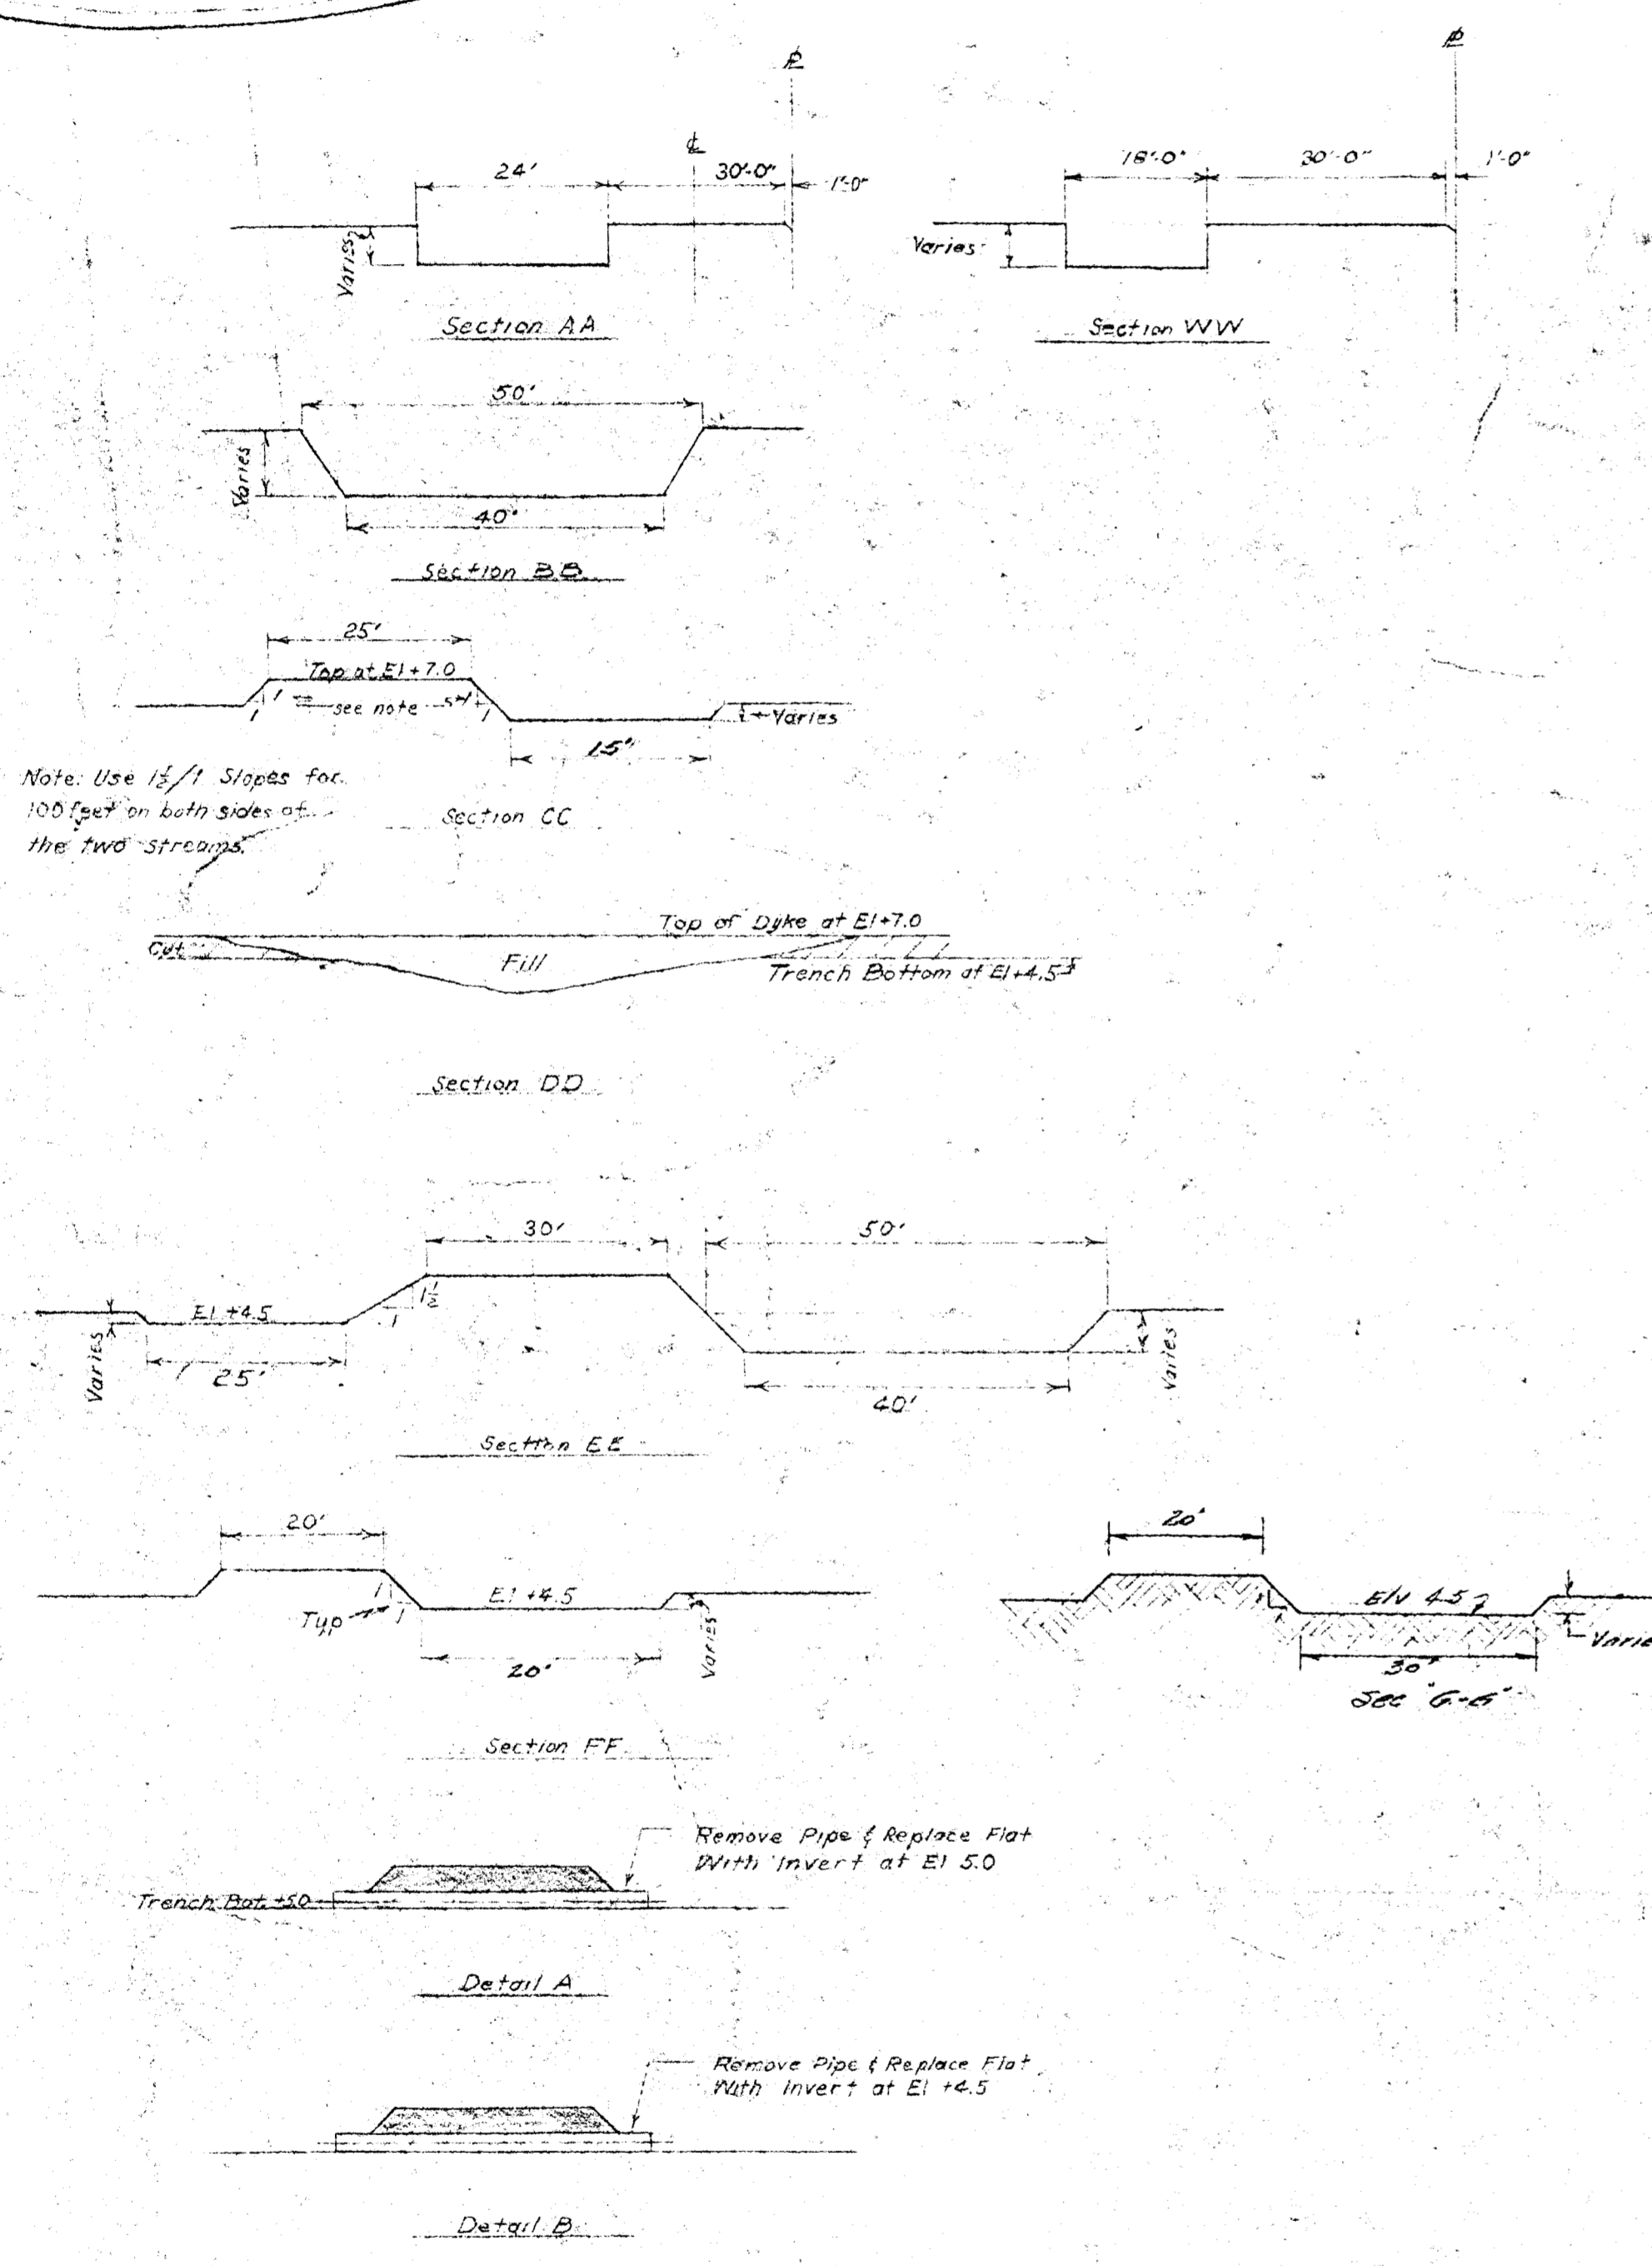 24'
30'-0"
1'-0"
Varies
Section AA
18'-0"
30'-0"
1'-0"
Varies
Section WW
50'
Varies
40'
Section BB
25'
Top at El+7.0
see note
Varies
15'
Note: Use 1½/1 Slopes for
100 feet on both sides of
the two streams.
Section CC
Top of Dyke at El+7.0
Cut
Fill
Trench Bottom at El+4.5±
Section DD
30'
50'
1½
1
El +4.5
Varies
25'
40'
Varies
Section EE
20'
1
1
Typ
El +4.5
20'
Varies
Section FF
20'
Elv 4.5
30'
Sec "G-G"
Remove Pipe & Replace Flat
With Invert at El 5.0
Trench Bot +5.0
Detail A
Remove Pipe & Replace Flat
With Invert at El +4.5
Detail B